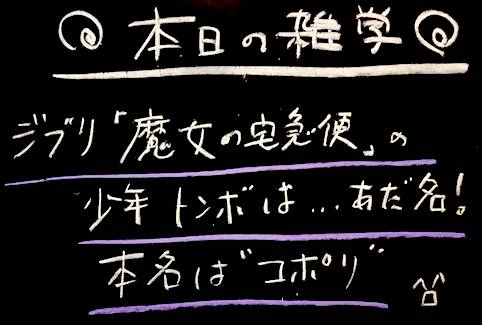 本日の雑学
ジブリ「魔女の宅急便」の
少年 トンボは...あだ名!
本名は"コポリ"